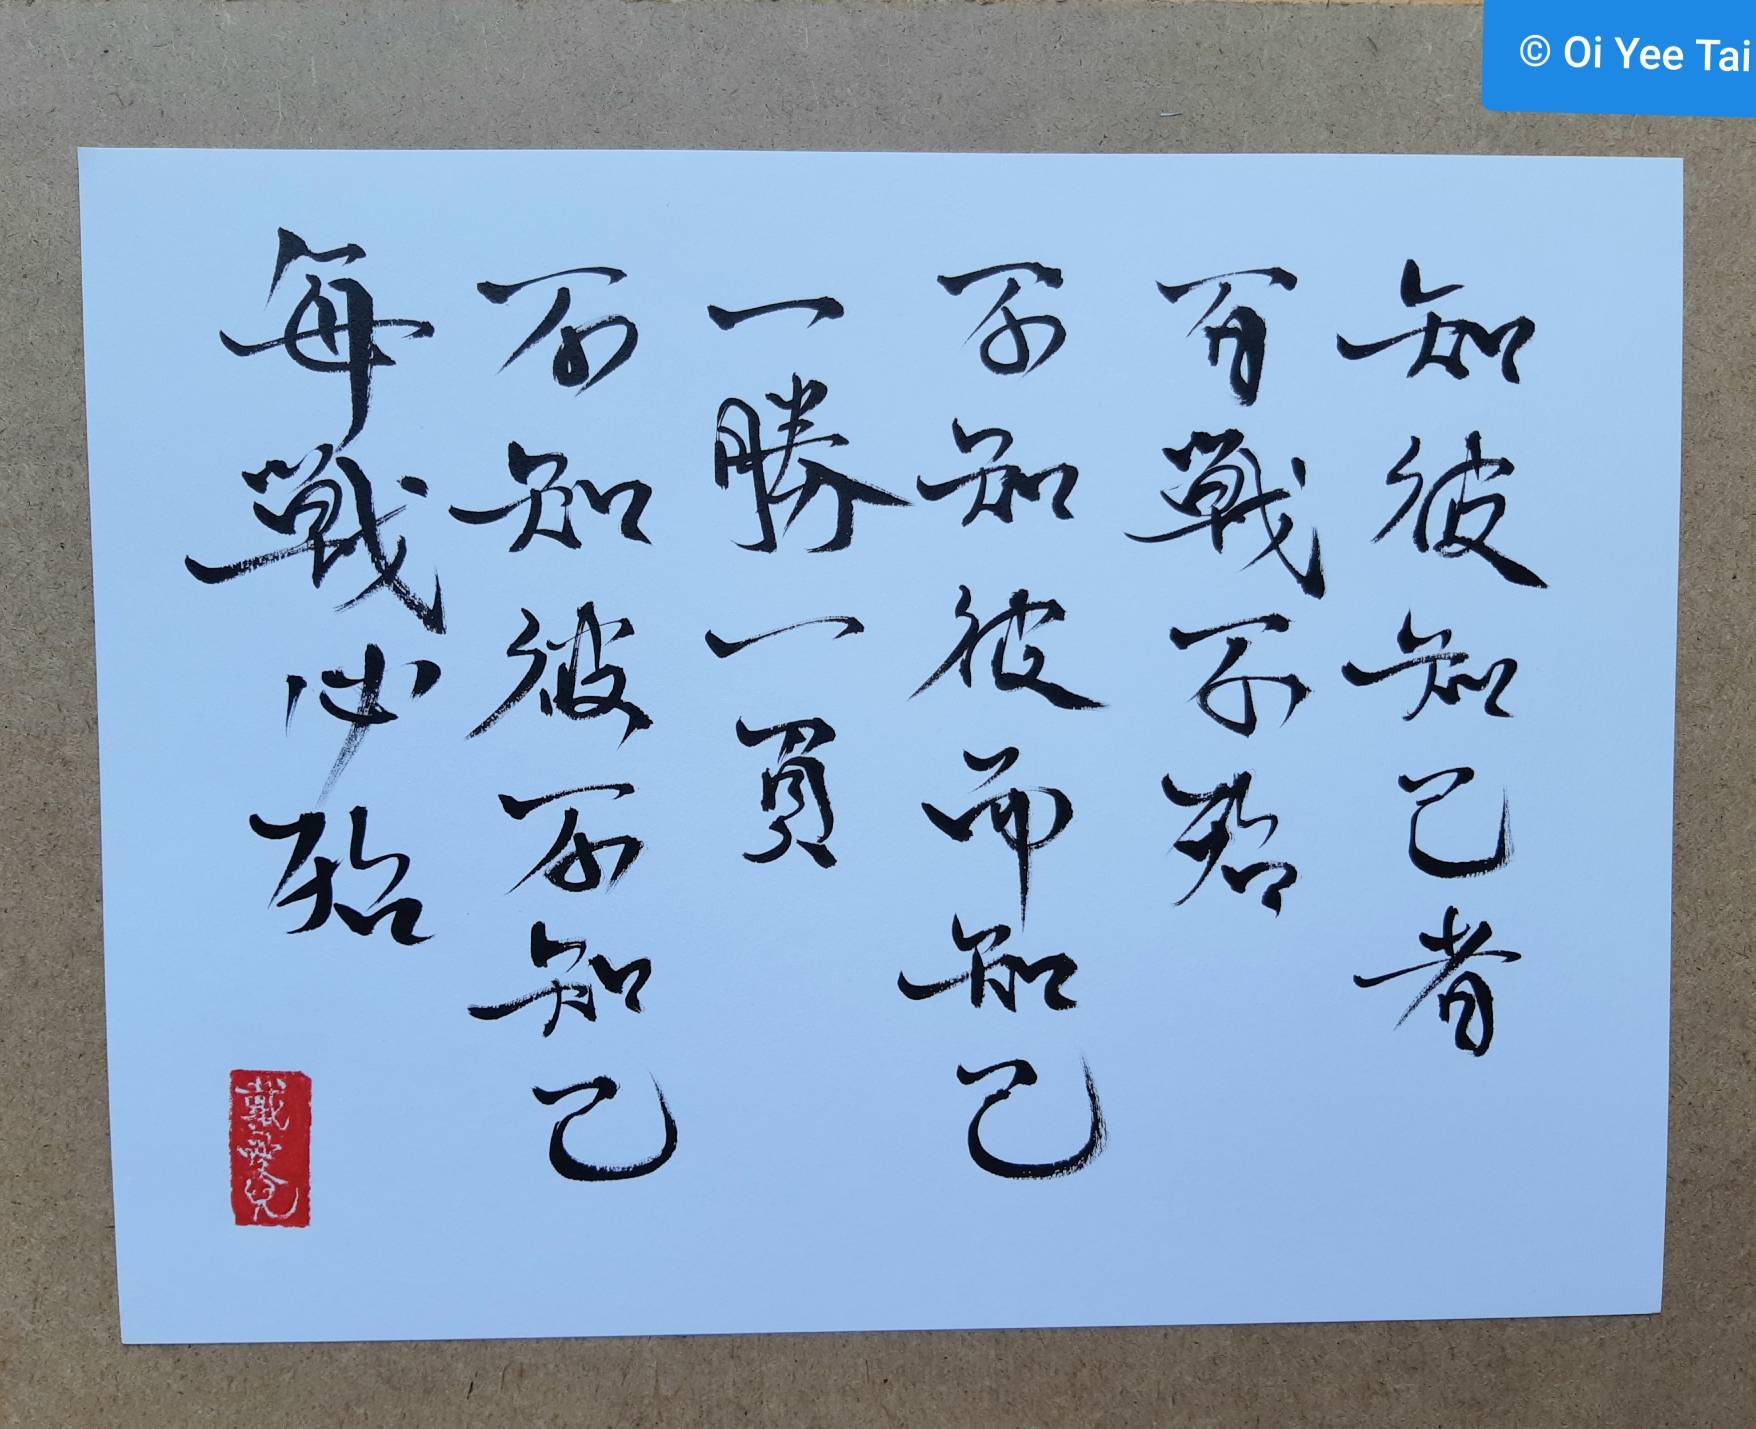 © Oi Yee Tai
知彼知己者
百戰不殆
不知彼而知己
一勝一負
不知彼不知己
每戰必殆
戴愛兒